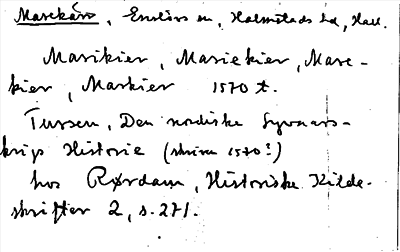 Marekärs, Enslövs sn, Halmstads hd, Hall.
Marikier, Mariekier, Mare-
kier, Markier 1570 t.
Tursen, Den nordiske Syvaars-
krigs Historie (skriven 1570?)
hos Rørdam, Historiske Kilde-
skrifter 2, s. 271.